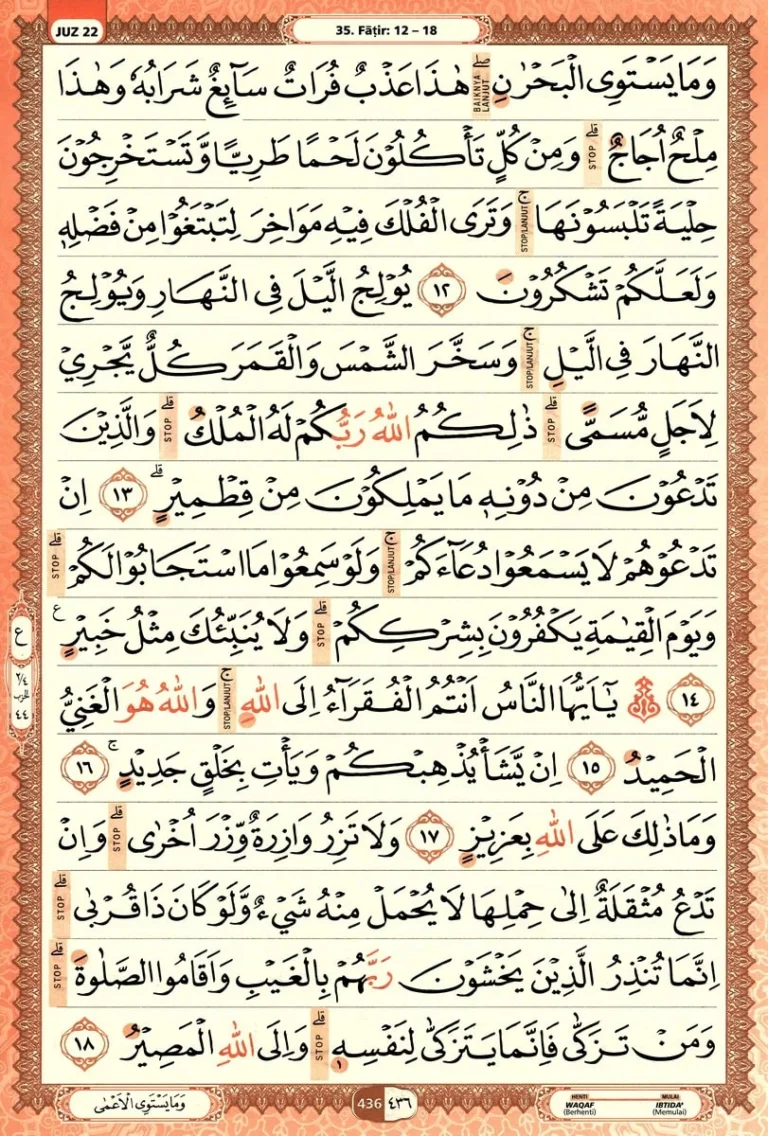 JUZ 22
35. Fāṭir: 12 – 18
وَمَا يَسْتَوِى الْبَحْرٰنِ ۖ هٰذَا عَذْبٌ فُرَاتٌ سَاۤىِٕغٌ شَرَابُهٗ وَهٰذَا
BAIKNYA LANJUT
مِلْحٌ اُجَاجٌۗ وَمِنْ كُلٍّ تَأْكُلُوْنَ لَحْمًا طَرِيًّا وَّتَسْتَخْرِجُوْنَ
STOP
حِلْيَةً تَلْبَسُوْنَهَا ۚ وَتَرَى الْفُلْكَ فِيْهِ مَوَاخِرَ لِتَبْتَغُوْا مِنْ فَضْلِهٖ
STOP/LANJUT
وَلَعَلَّكُمْ تَشْكُرُوْنَ ١٢ يُوْلِجُ الَّيْلَ فِى النَّهَارِ وَيُوْلِجُ
النَّهَارَ فِى الَّيْلِۚ وَسَخَّرَ الشَّمْسَ وَالْقَمَرَ كُلٌّ يَّجْرِيْ
STOP/LANJUT
لِاَجَلٍ مُّسَمًّىۗ ذٰلِكُمُ اللّٰهُ رَبُّكُمْ لَهُ الْمُلْكُۗ وَالَّذِيْنَ
STOP
STOP
تَدْعُوْنَ مِنْ دُوْنِهٖ مَا يَمْلِكُوْنَ مِنْ قِطْمِيْرٍۗ ١٣ اِنْ
تَدْعُوْهُمْ لَا يَسْمَعُوْا دُعَاۤءَكُمْۚ وَلَوْ سَمِعُوْا مَا اسْتَجَابُوْا لَكُمْۗ
STOP/LANJUT
STOP
وَيَوْمَ الْقِيٰمَةِ يَكْفُرُوْنَ بِشِرْكِكُمْۗ وَلَا يُنَبِّئُكَ مِثْلُ خَبِيْرٍ ع
STOP
١٤ ۞ يٰٓاَيُّهَا النَّاسُ اَنْتُمُ الْفُقَرَاۤءُ اِلَى اللّٰهِ ۚ وَاللّٰهُ هُوَ الْغَنِيُّ
STOP/LANJUT
الْحَمِيْدُ ١٥ اِنْ يَّشَأْ يُذْهِبْكُمْ وَيَأْتِ بِخَلْقٍ جَدِيْدٍۚ ١٦
وَمَا ذٰلِكَ عَلَى اللّٰهِ بِعَزِيْزٍ ١٧ وَلَا تَزِرُ وَازِرَةٌ وِّزْرَ اُخْرٰىۗ وَاِنْ
STOP
تَدْعُ مُثْقَلَةٌ اِلٰى حِمْلِهَا لَا يُحْمَلْ مِنْهُ شَيْءٌ وَّلَوْ كَانَ ذَا قُرْبٰىۗ
STOP
اِنَّمَا تُنْذِرُ الَّذِيْنَ يَخْشَوْنَ رَبَّهُمْ بِالْغَيْبِ وَاَقَامُوا الصَّلٰوةَۗ
STOP
وَمَنْ تَزَكّٰى فَاِنَّمَا يَتَزَكّٰى لِنَفْسِهٖۗ وَاِلَى اللّٰهِ الْمَصِيْرُ ١٨
STOP
ع
٢/٤
الحزب
٤٤
وَمَا يَسْتَوِى الْاَعْمٰى
436 ٤٣٦
HENTI
WAQAF
(Berhenti)
MULAI
IBTIDA'
(Memulai)